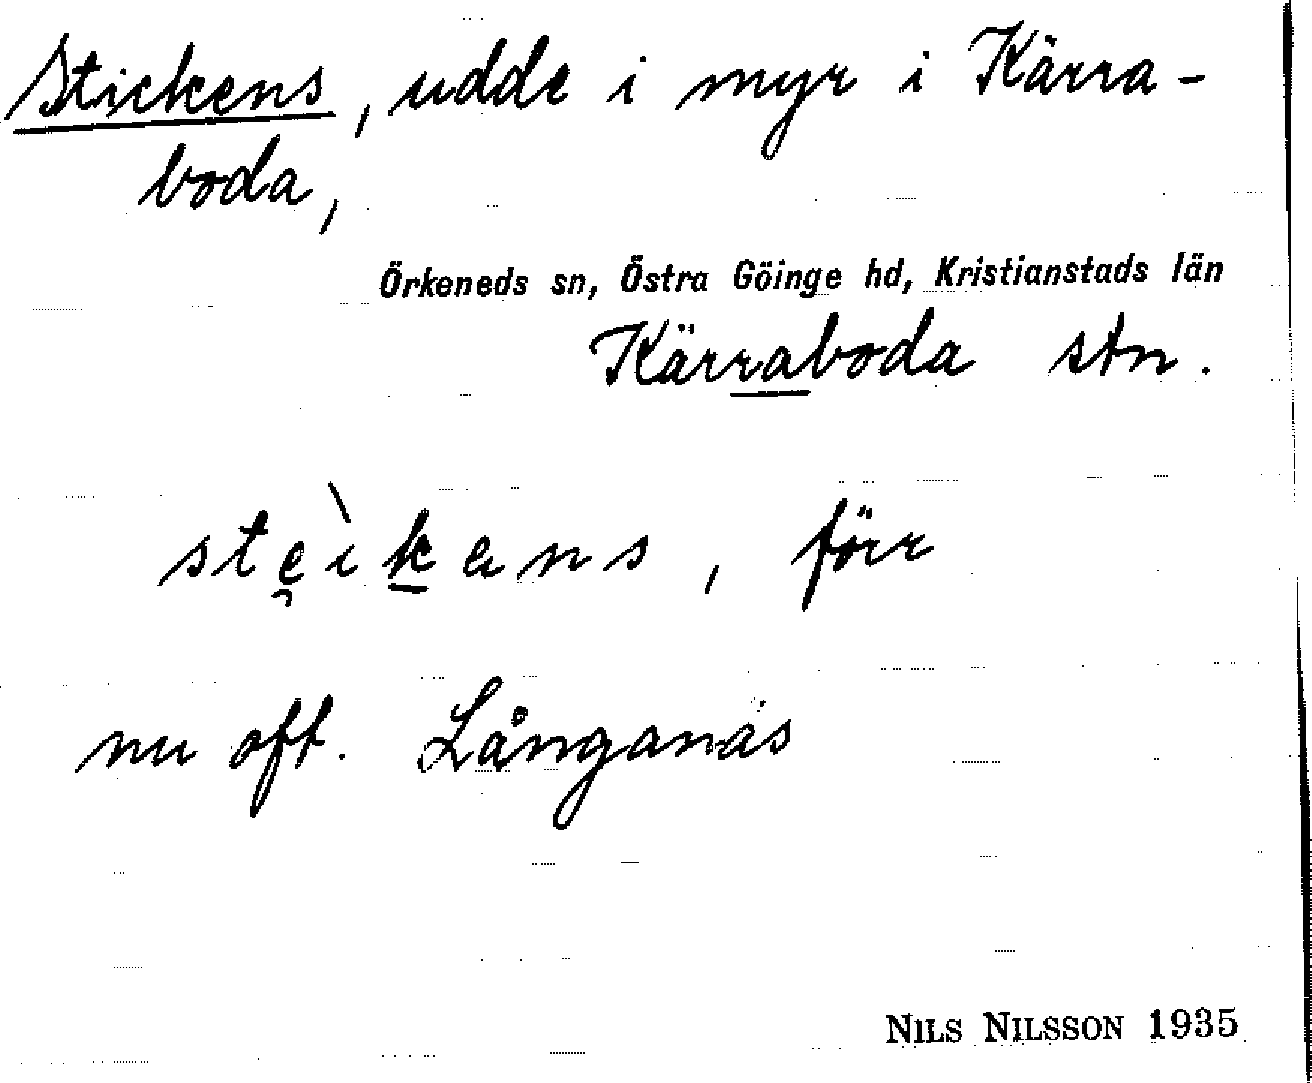 Stickens, udde i myr i Kärra-
boda,
Örkeneds sn, Östra Göinge hd, Kristianstads län
Kärraboda stn.
ste̯ìḵens, förr
nu oft. Långanäs
NILS NILSSON 1935